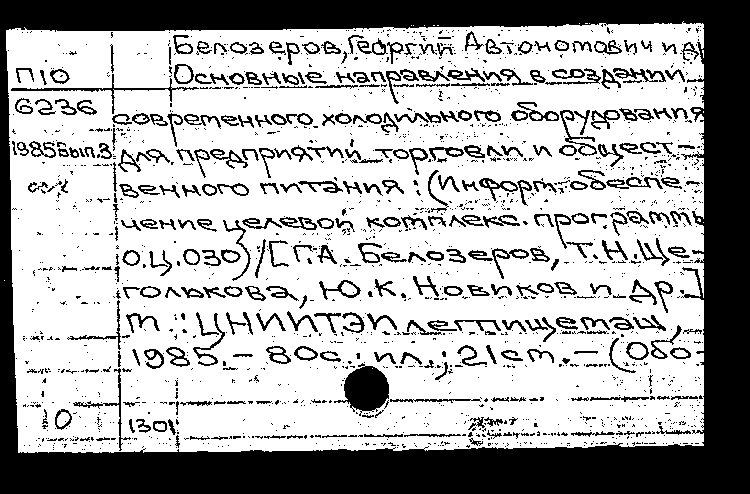 Белозеров, Георгий Автономович и др
П10 Основные направления в создании
6236 современного холодильного оборудования
1985 Вып.3 для предприятий торговли и общест-
венного питания : (Информ. обеспе-
чение целевой комплекс. программы
О.Ц.030) / [Г.А. Белозеров, Т.Н. Ще-
голькова, Ю.К. Новиков и др.]
М. : ЦНИИТЭИлегпищемаш,
1985. – 80с. : ил. ; 21см. – (Обо-
10 1301